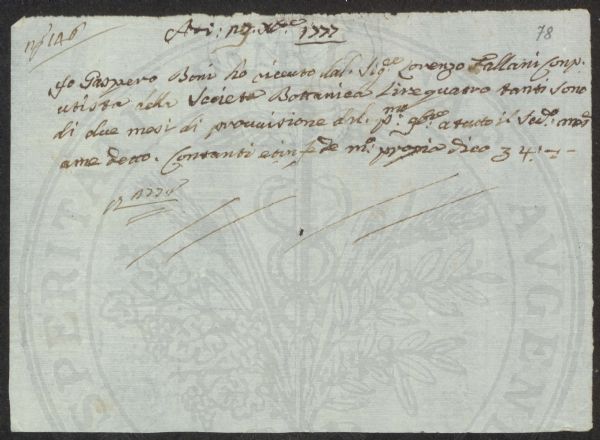 nº 146
Adi: 29. Xbre 1777
78
Io Gaspero Boni ho riceuto dal Sig.re Lorenzo Fallani Conp
utista della Societa Bottanica Lire quatro tanti sono
di due mesi di prouuisione dal p.mo 9bre a tutto il Sud.o mes
ame detto. Contanti e in fede m.o propia dico 34:-:-
PROSPERITATI
AVGEN